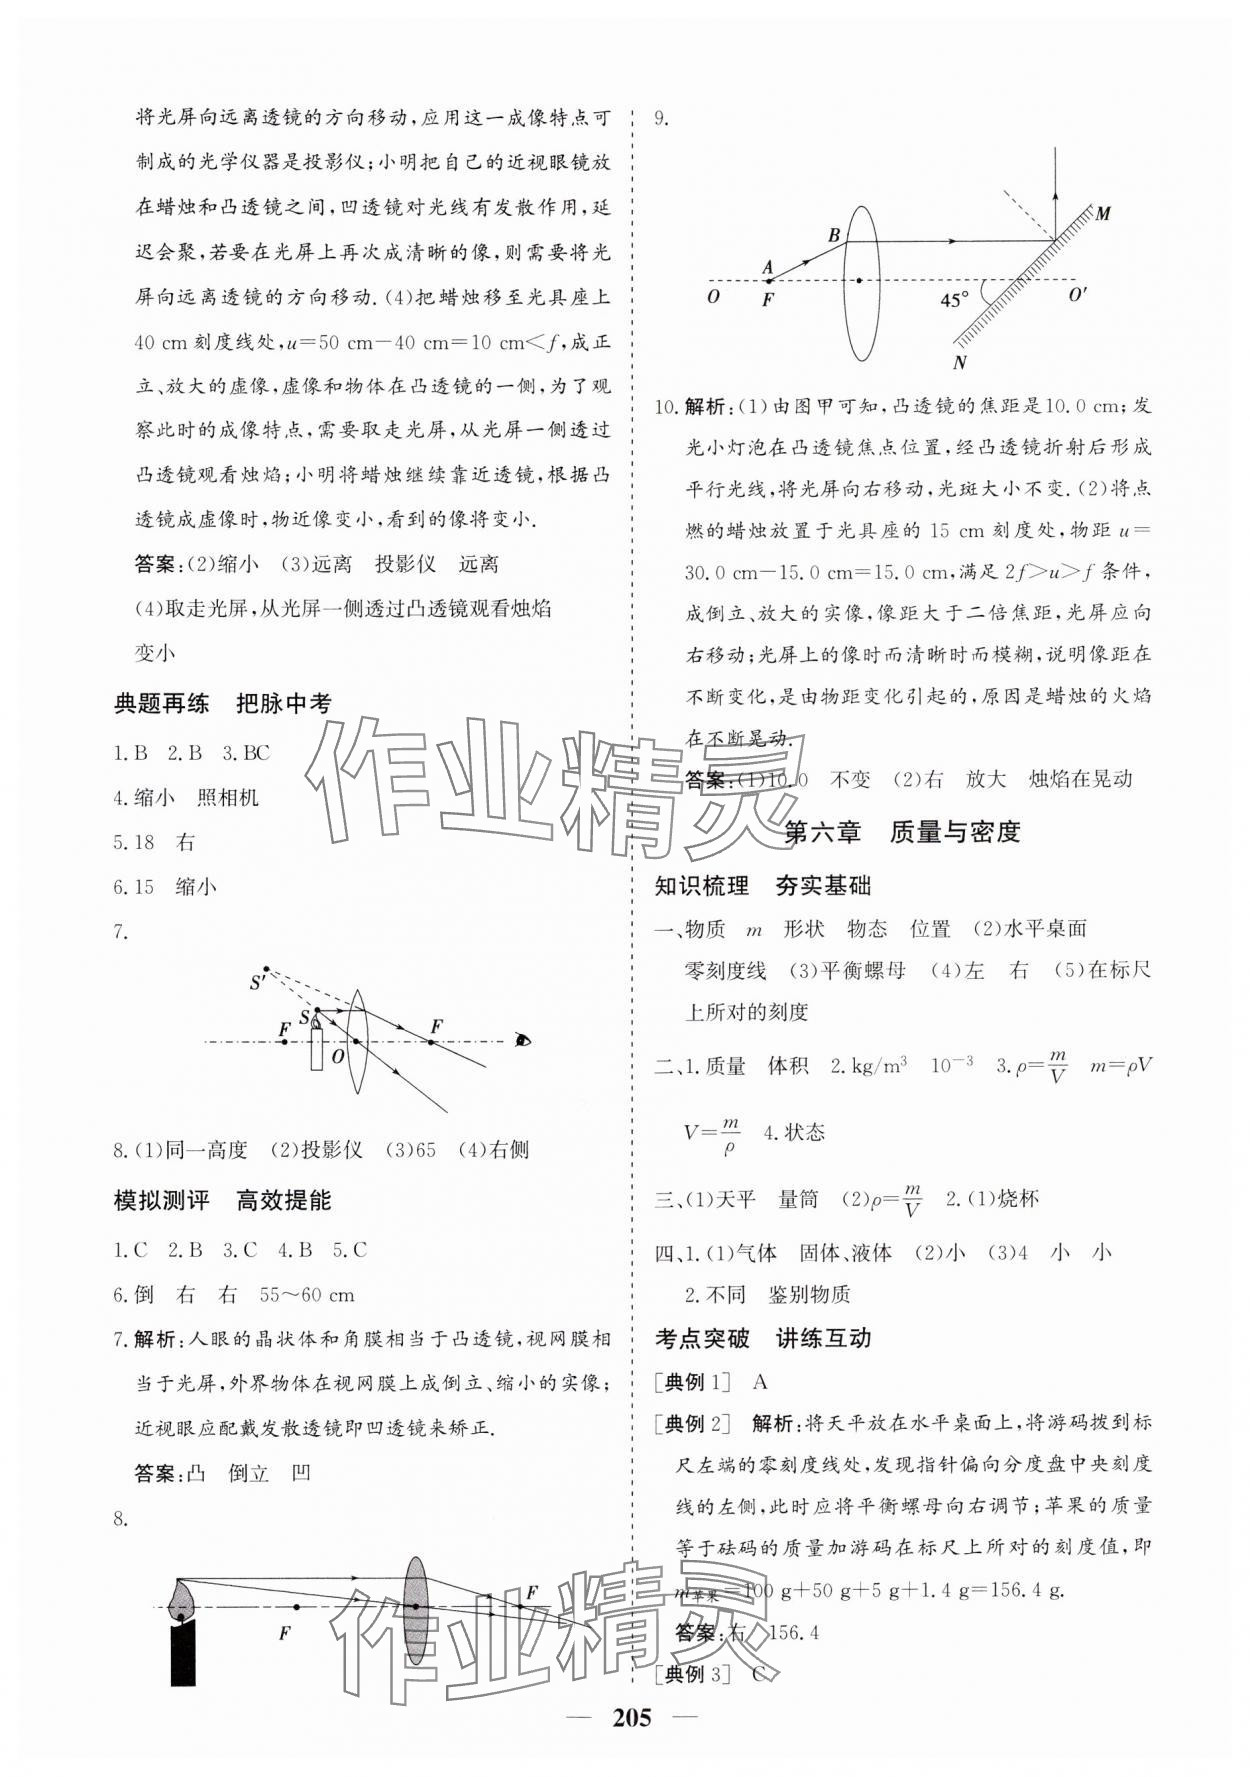 将光屏向远离透镜的方向移动,应用这一成像特点可
制成的光学仪器是投影仪;小明把自己的近视眼镜放
在蜡烛和凸透镜之间,凹透镜对光线有发散作用,延
迟会聚,若要在光屏上再次成清晰的像,则需要将光
屏向远离透镜的方向移动.(4)把蜡烛移至光具座上
40 cm刻度线处,u=50 cm-40 cm=10 cm<f,成正
立、放大的虚像,虚像和物体在凸透镜的一侧,为了观
察此时的成像特点,需要取走光屏,从光屏一侧透过
凸透镜观看烛焰;小明将蜡烛继续靠近透镜,根据凸
透镜成虚像时,物近像变小,看到的像将变小.
答案:(2)缩小 (3)远离 投影仪 远离
(4)取走光屏,从光屏一侧透过凸透镜观看烛焰
变小
典题再练 把脉中考
1.B 2.B 3.BC
4.缩小 照相机
5.18 右
6.15 缩小
7.
S′
S
F
O
F
8.(1)同一高度 (2)投影仪 (3)65 (4)右侧
模拟测评 高效提能
1.C 2.B 3.C 4.B 5.C
6.倒 右 右 55~60 cm
7.解析:人眼的晶状体和角膜相当于凸透镜,视网膜相
当于光屏,外界物体在视网膜上成倒立、缩小的实像;
近视眼应配戴发散透镜即凹透镜来矫正.
答案:凸 倒立 凹
8.
F
F
9.
M
B
A
O
F
45°
O′
N
10.解析:(1)由图甲可知,凸透镜的焦距是10.0 cm;发
光小灯泡在凸透镜焦点位置,经凸透镜折射后形成
平行光线,将光屏向右移动,光斑大小不变.(2)将点
燃的蜡烛放置于光具座的 15 cm 刻度处,物距 u=
30.0 cm-15.0 cm=15.0 cm,满足 2f>u>f 条件,
成倒立、放大的实像,像距大于二倍焦距,光屏应向
右移动;光屏上的像时而清晰时而模糊,说明像距在
不断变化,是由物距变化引起的,原因是蜡烛的火焰
在不断晃动.
答案:(1)10.0 不变 (2)右 放大 烛焰在晃动
第六章 质量与密度
知识梳理 夯实基础
一、物质 m 形状 物态 位置 (2)水平桌面
零刻度线 (3)平衡螺母 (4)左 右 (5)在标尺
上所对的刻度
二、1.质量 体积 2.kg/m³ 10⁻³ 3.ρ=m/V m=ρV
V=m/ρ 4.状态
三、(1)天平 量筒 (2)ρ=m/V 2.(1)烧杯
四、1.(1)气体 固体、液体 (2)小 (3)4 小 小
2.不同 鉴别物质
考点突破 讲练互动
[典例1] A
[典例2] 解析:将天平放在水平桌面上,将游码拨到标
尺左端的零刻度线处,发现指针偏向分度盘中央刻度
线的左侧,此时应将平衡螺母向右调节;苹果的质量
等于砝码的质量加游码在标尺上所对的刻度值,即
m苹果=100 g+50 g+5 g+1.4 g=156.4 g.
答案:右 156.4
[典例3] C
作业精灵
作业精灵
— 205 —